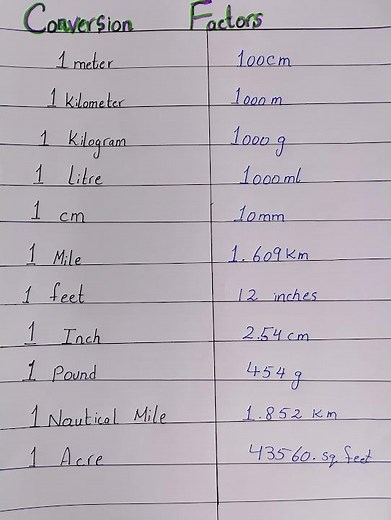 Conversion Factors
1 meter 100cm
1 Kilometer 1000 m
1 Kilogram 1000 g
1 litre 1000ml
1 cm 10mm
1 Mile 1.609 Km
1 feet 12 inches
1 Inch 2.54 cm
1 Pound 454 g
1 Nautical Mile 1.852 Km
1 Acre 43560.sq feet